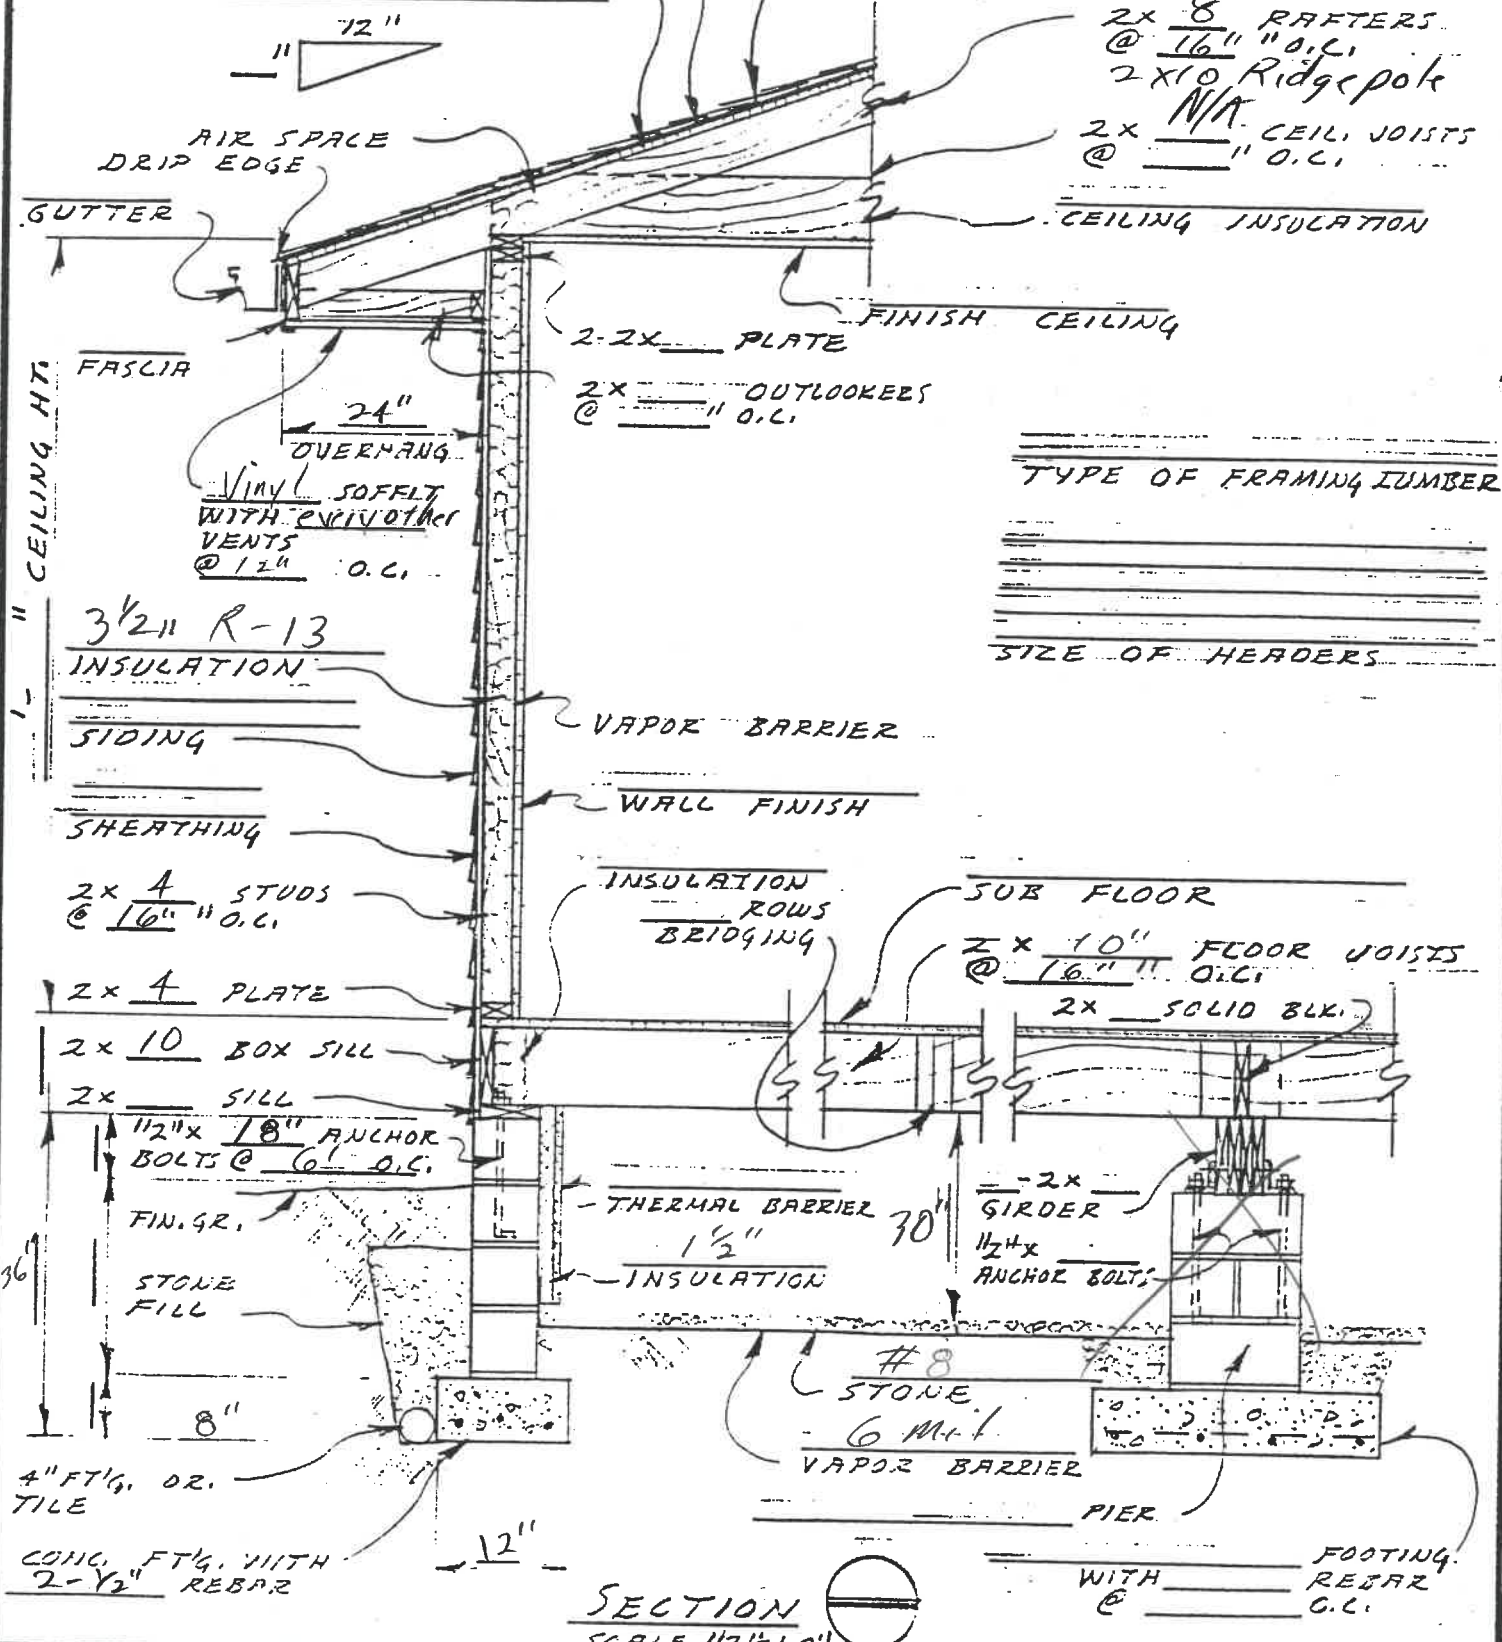 12"
"
2x 8 RAFTERS
@ 16" " O.C.
2x10 Ridgepole
2x N/A CEIL. JOISTS
@ ___ " O.C.
AIR SPACE
DRIP EDGE
GUTTER
CEILING INSULATION
5
FINISH CEILING
2-2x ___ PLATE
FASCIA
2x ___ OUTLOOKERS
@ ___ " O.C.
24"
OVERHANG
Vinyl SOFFIT
WITH every other
VENTS
@ 12" O.C.
TYPE OF FRAMING LUMBER
'- " CEILING HT.
SIZE OF HEADERS
3 1/2" R-13
INSULATION
VAPOR BARRIER
SIDING
WALL FINISH
SHEATHING
2x 4 STUDS
@ 16" " O.C.
INSULATION
___ ROWS
BRIDGING
SUB FLOOR
2 x 10" FLOOR JOISTS
@ 16" " O.C.
2x 4 PLATE
2x ___ SOLID BLK.
2x 10 BOX SILL
2x ___ SILL
1/2"x 18" ANCHOR
BOLTS @ 6' O.C.
FIN. GR.
THERMAL BARRIER
1 1/2"
INSULATION
30"
___-2x ___
GIRDER
1/2"x ___
ANCHOR BOLTS
36"
STONE
FILL
#8
STONE
6 Mil
VAPOR BARRIER
8"
4" FT'G. DR.
TILE
PIER
12"
CONC. FT'G. WITH
2-1/2" REBAR
FOOTING
WITH ___ REBAR
@ ___ O.C.
SECTION
SCALE 1/2"=1'-0"